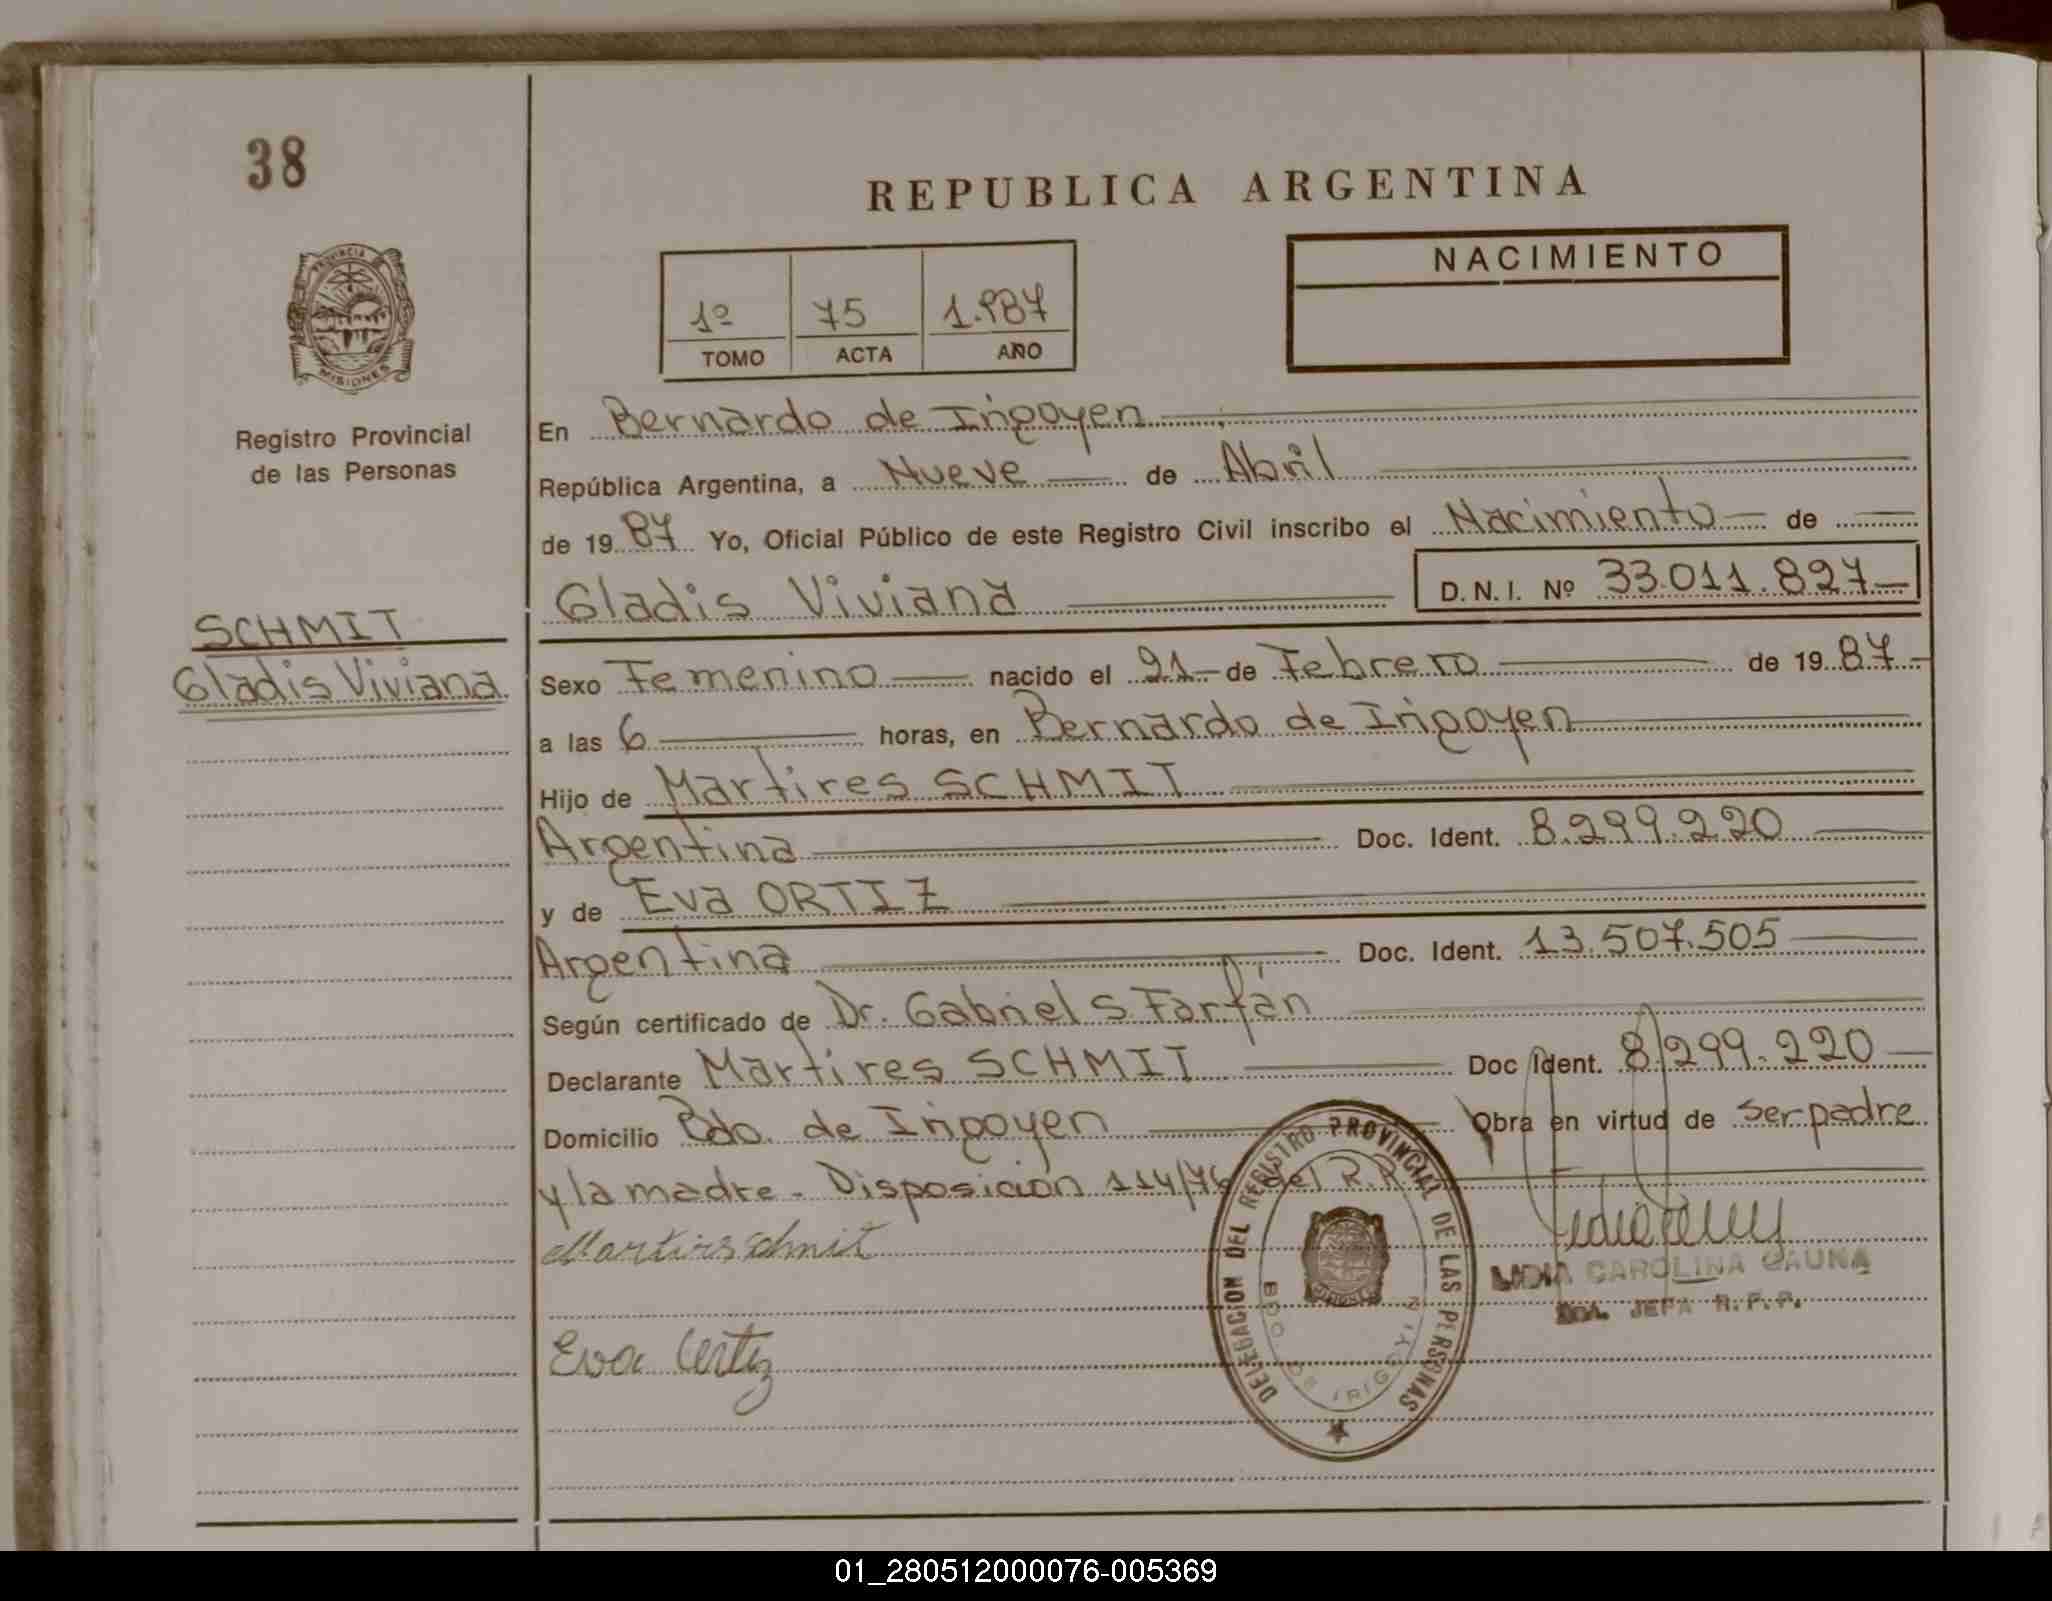 38
REPUBLICA ARGENTINA
PROVINCIA DE
MISIONES
Registro Provincial
de las Personas
1º 75 1.987
TOMO ACTA AÑO
NACIMIENTO
En Bernardo de Irigoyen
República Argentina, a Nueve de Abril
de 19 87 Yo, Oficial Público de este Registro Civil inscribo el Nacimiento de
Gladis Viviana D.N.I. Nº 33.011.827
SCHMIT
Gladis Viviana
Sexo Femenino nacido el 21 de Febrero de 19 87
a las 6 horas, en Bernardo de Irigoyen
Hijo de Martires SCHMIT
Argentina Doc. Ident. 8.299.220
y de Eva ORTIZ
Argentina Doc. Ident. 13.507.505
Según certificado de Dr. Gabriel S. Farfán
Declarante Martires SCHMIT Doc Ident. 8.299.220
Domicilio Bdo. de Irigoyen Obra en virtud de ser padre
y la madre. Disposición 114/76 del R.R
Martires Schmit
Eva Ortiz
DELEGACION DEL REGISTRO PROVINCIAL DE LAS PERSONAS
BDO. DE IRIGOYEN
LIDIA CAROLINA GAUNA
JEFA R.P.P.
01_280512000076-005369